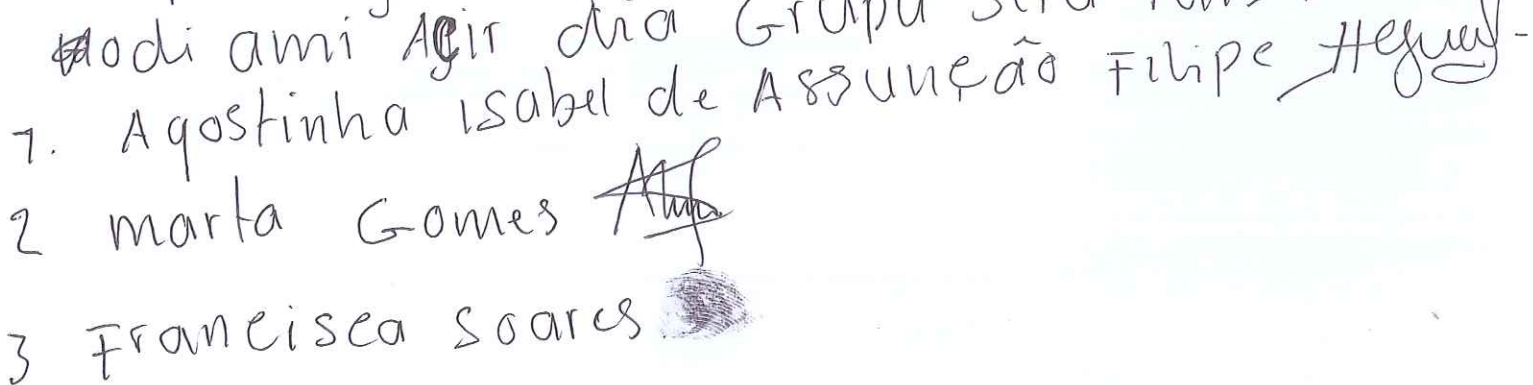 hodi ami Agir dia Grupu
1. Agostinha isabel de Assunção Filipe
2 marta Gomes
3 Francisca Soares